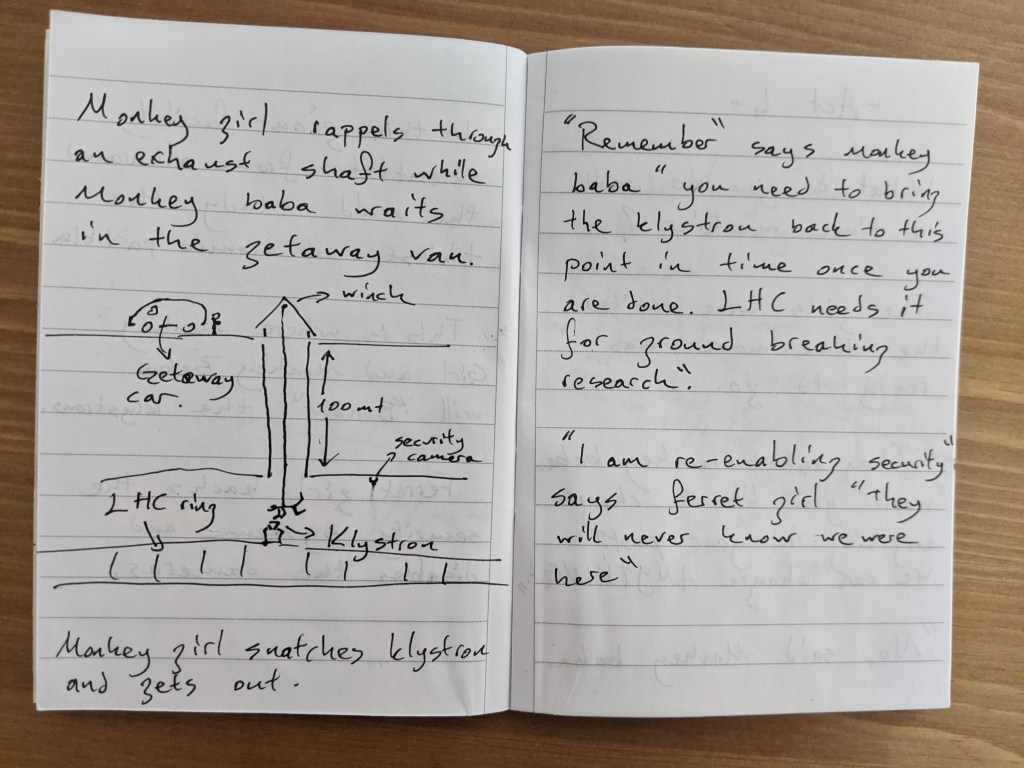 Monkey girl rappels through
an exhaust shaft while
Monkey baba waits
in the getaway van.
winch
Getaway
car.
100mt
security
camera
LHC ring
Klystron
Monkey girl snatches klystron
and gets out.
"Remember" says Monkey
baba "you need to bring
the klystron back to this
point in time once you
are done. LHC needs it
for ground breaking
research".
"I am re-enabling security"
says ferret girl "they
will never know we were
here"